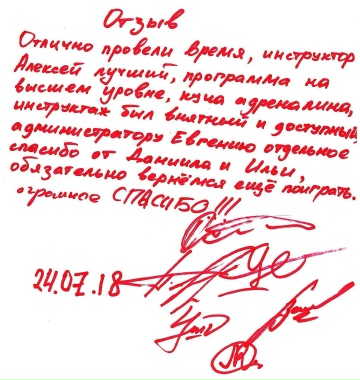 Отзыв
Отлично провели время, инструктор
Алексей лучший, программа на
высшем уровне, куча адреналина,
инструктаж был внятный и доступный,
администратору Евгению отдельное
спасибо от Даниила и Ильи,
обязательно вернёмся ещё поиграть.
огромное СПАСИБО!!!
24.07.18